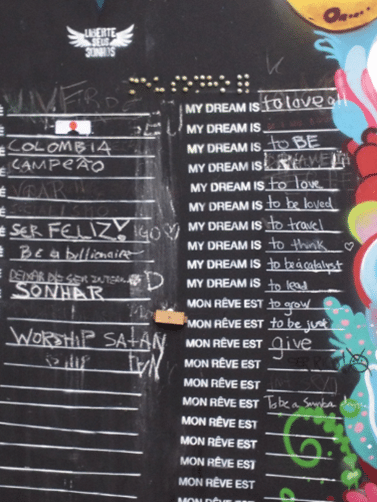 LIBERTE
SEUS
SONHOS
COLOMBIA
CAMPEÃO
SER FELIZ!
Be a billionaire
SONHAR
WORSHIP SATAN
MY DREAM IS to love all
MY DREAM IS
MY DREAM IS to BE
MY DREAM IS
MY DREAM IS to love
MY DREAM IS to be loved
MY DREAM IS to travel
MY DREAM IS to think
MY DREAM IS to be a catalyst
MY DREAM IS to lead
MON RÊVE EST to grow
MON RÊVE EST to be just
MON RÊVE EST give
MON RÊVE EST
MON RÊVE EST
MON RÊVE EST To be a Samba
MON RÊVE EST
MON RÊVE EST
MON RÊVE EST
MON RÊVE EST
MON RÊVE EST